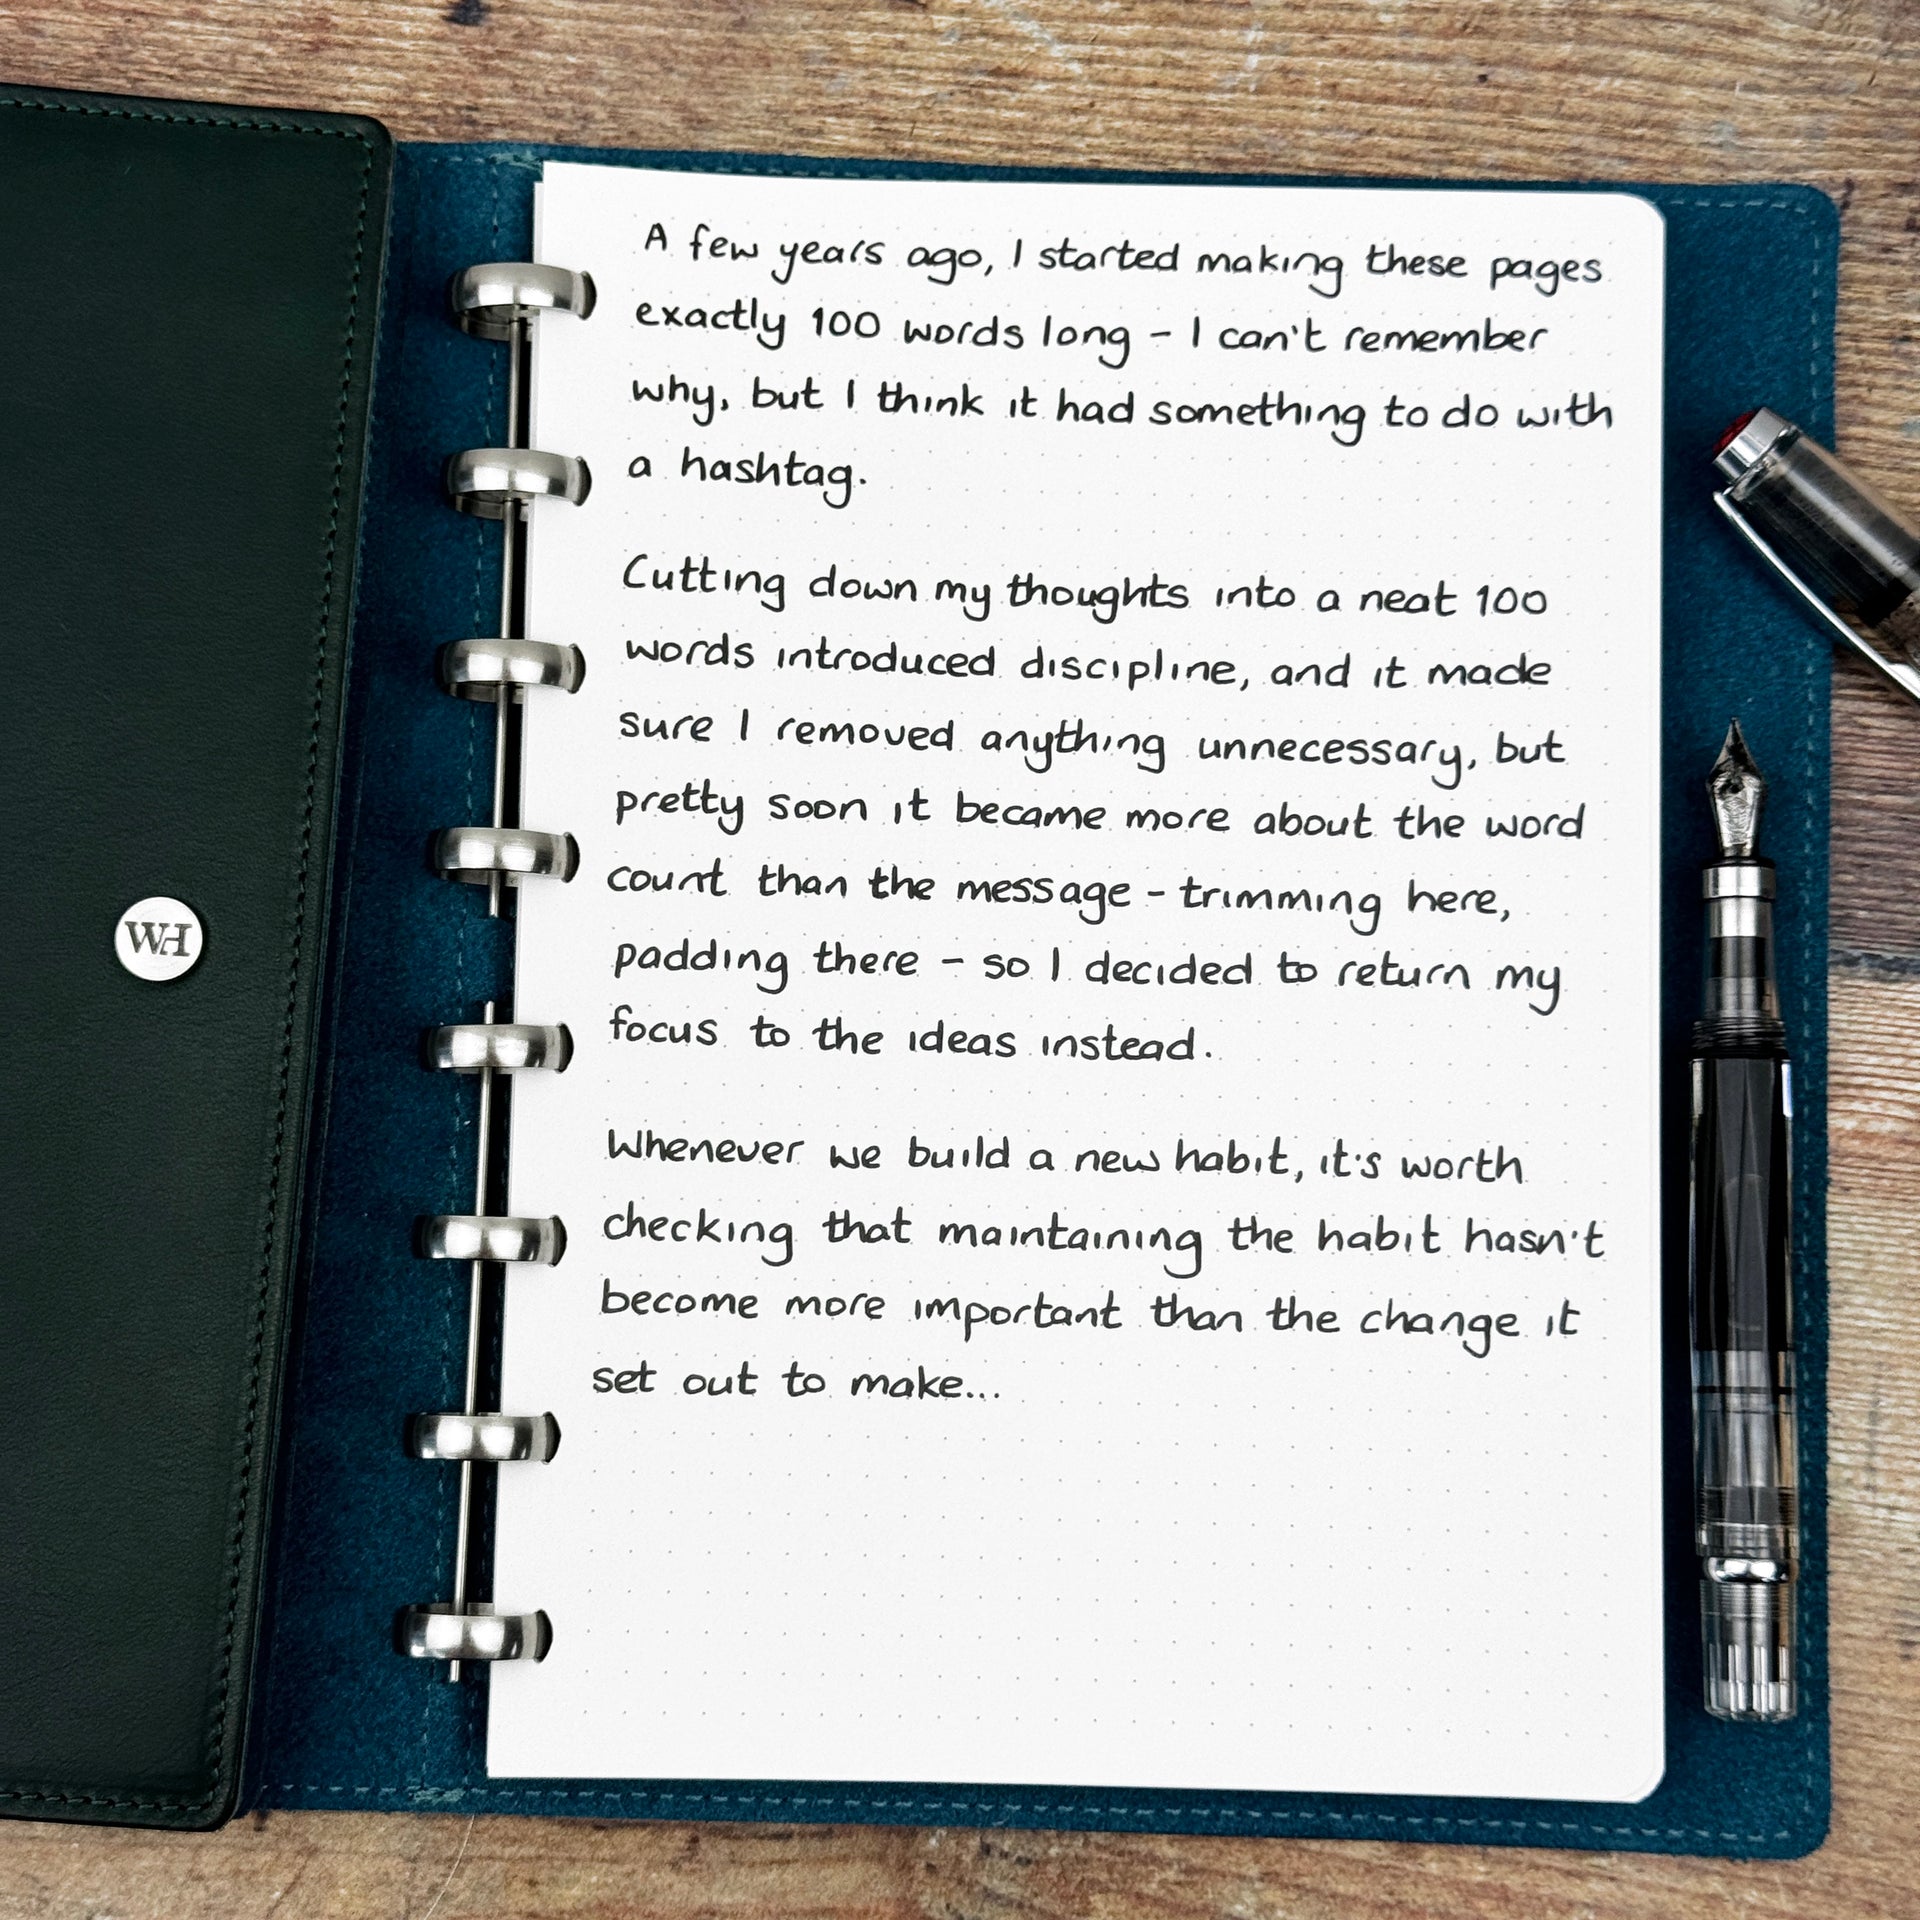 A few years ago, I started making these pages
exactly 100 words long - I can't remember
why, but I think it had something to do with
a hashtag.
Cutting down my thoughts into a neat 100
words introduced discipline, and it made
sure I removed anything unnecessary, but
pretty soon it became more about the word
count than the message - trimming here,
padding there - so I decided to return my
focus to the ideas instead.
Whenever we build a new habit, it's worth
checking that maintaining the habit hasn't
become more important than the change it
set out to make...
WH